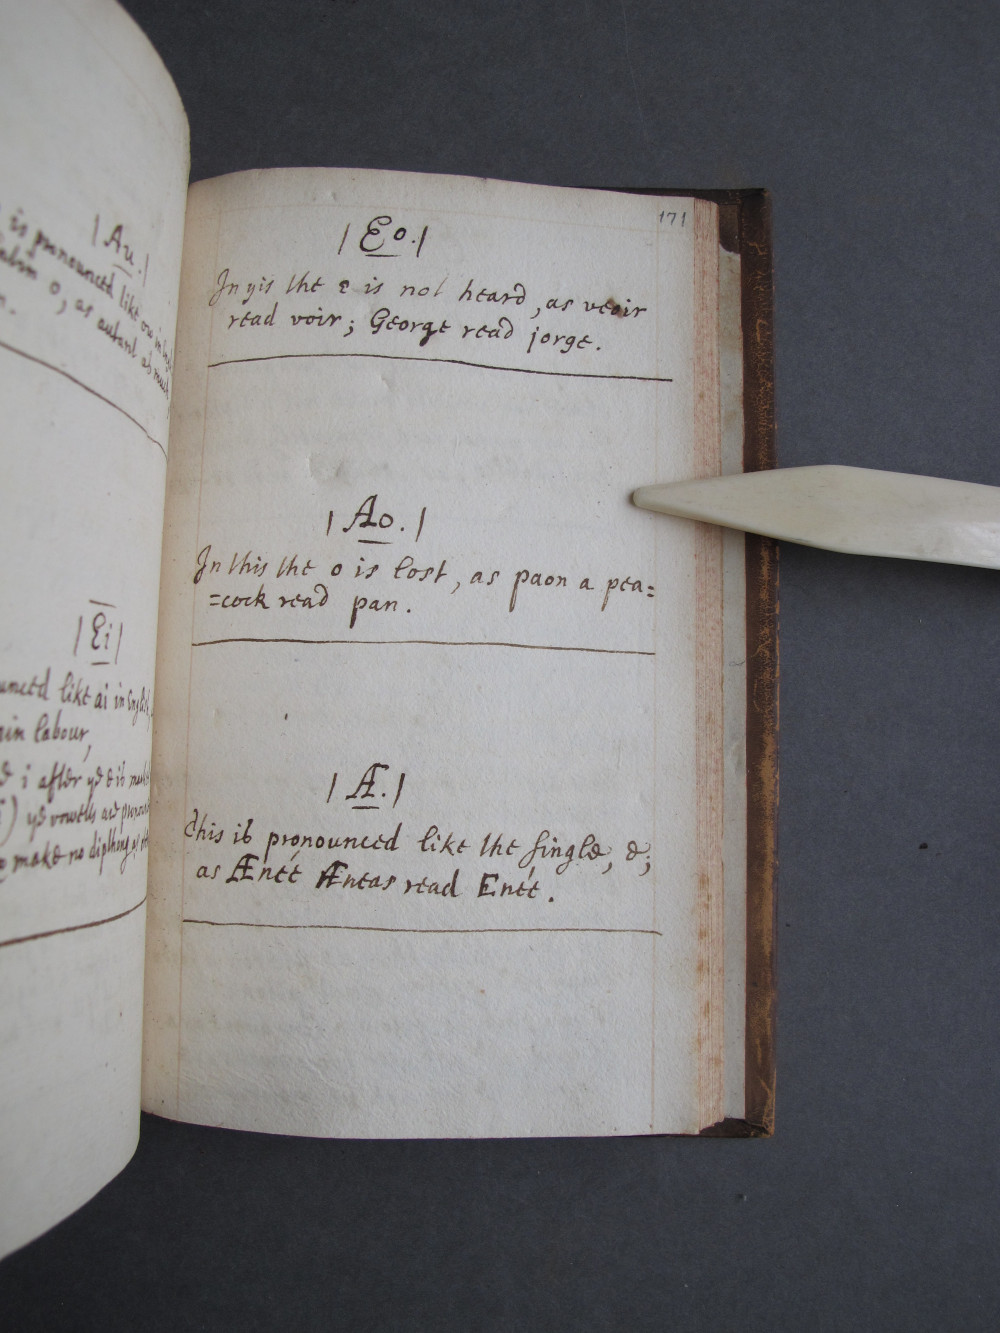 | Au. |
is pronounced like ow in
o, as autant as much
| Ei |
like ai in English,
labour,
i after ye e is
ye vowells are
make no dipthong as
171
| Eo. |
In yis the e is not heard, as veoir
read voir; George read jorge.
| Ao. |
In this the o is lost, as paon a pea=
=cock read pan.
| Æ. |
this is pronounced like the single, e;
as Æneé Æneas read Eneé.